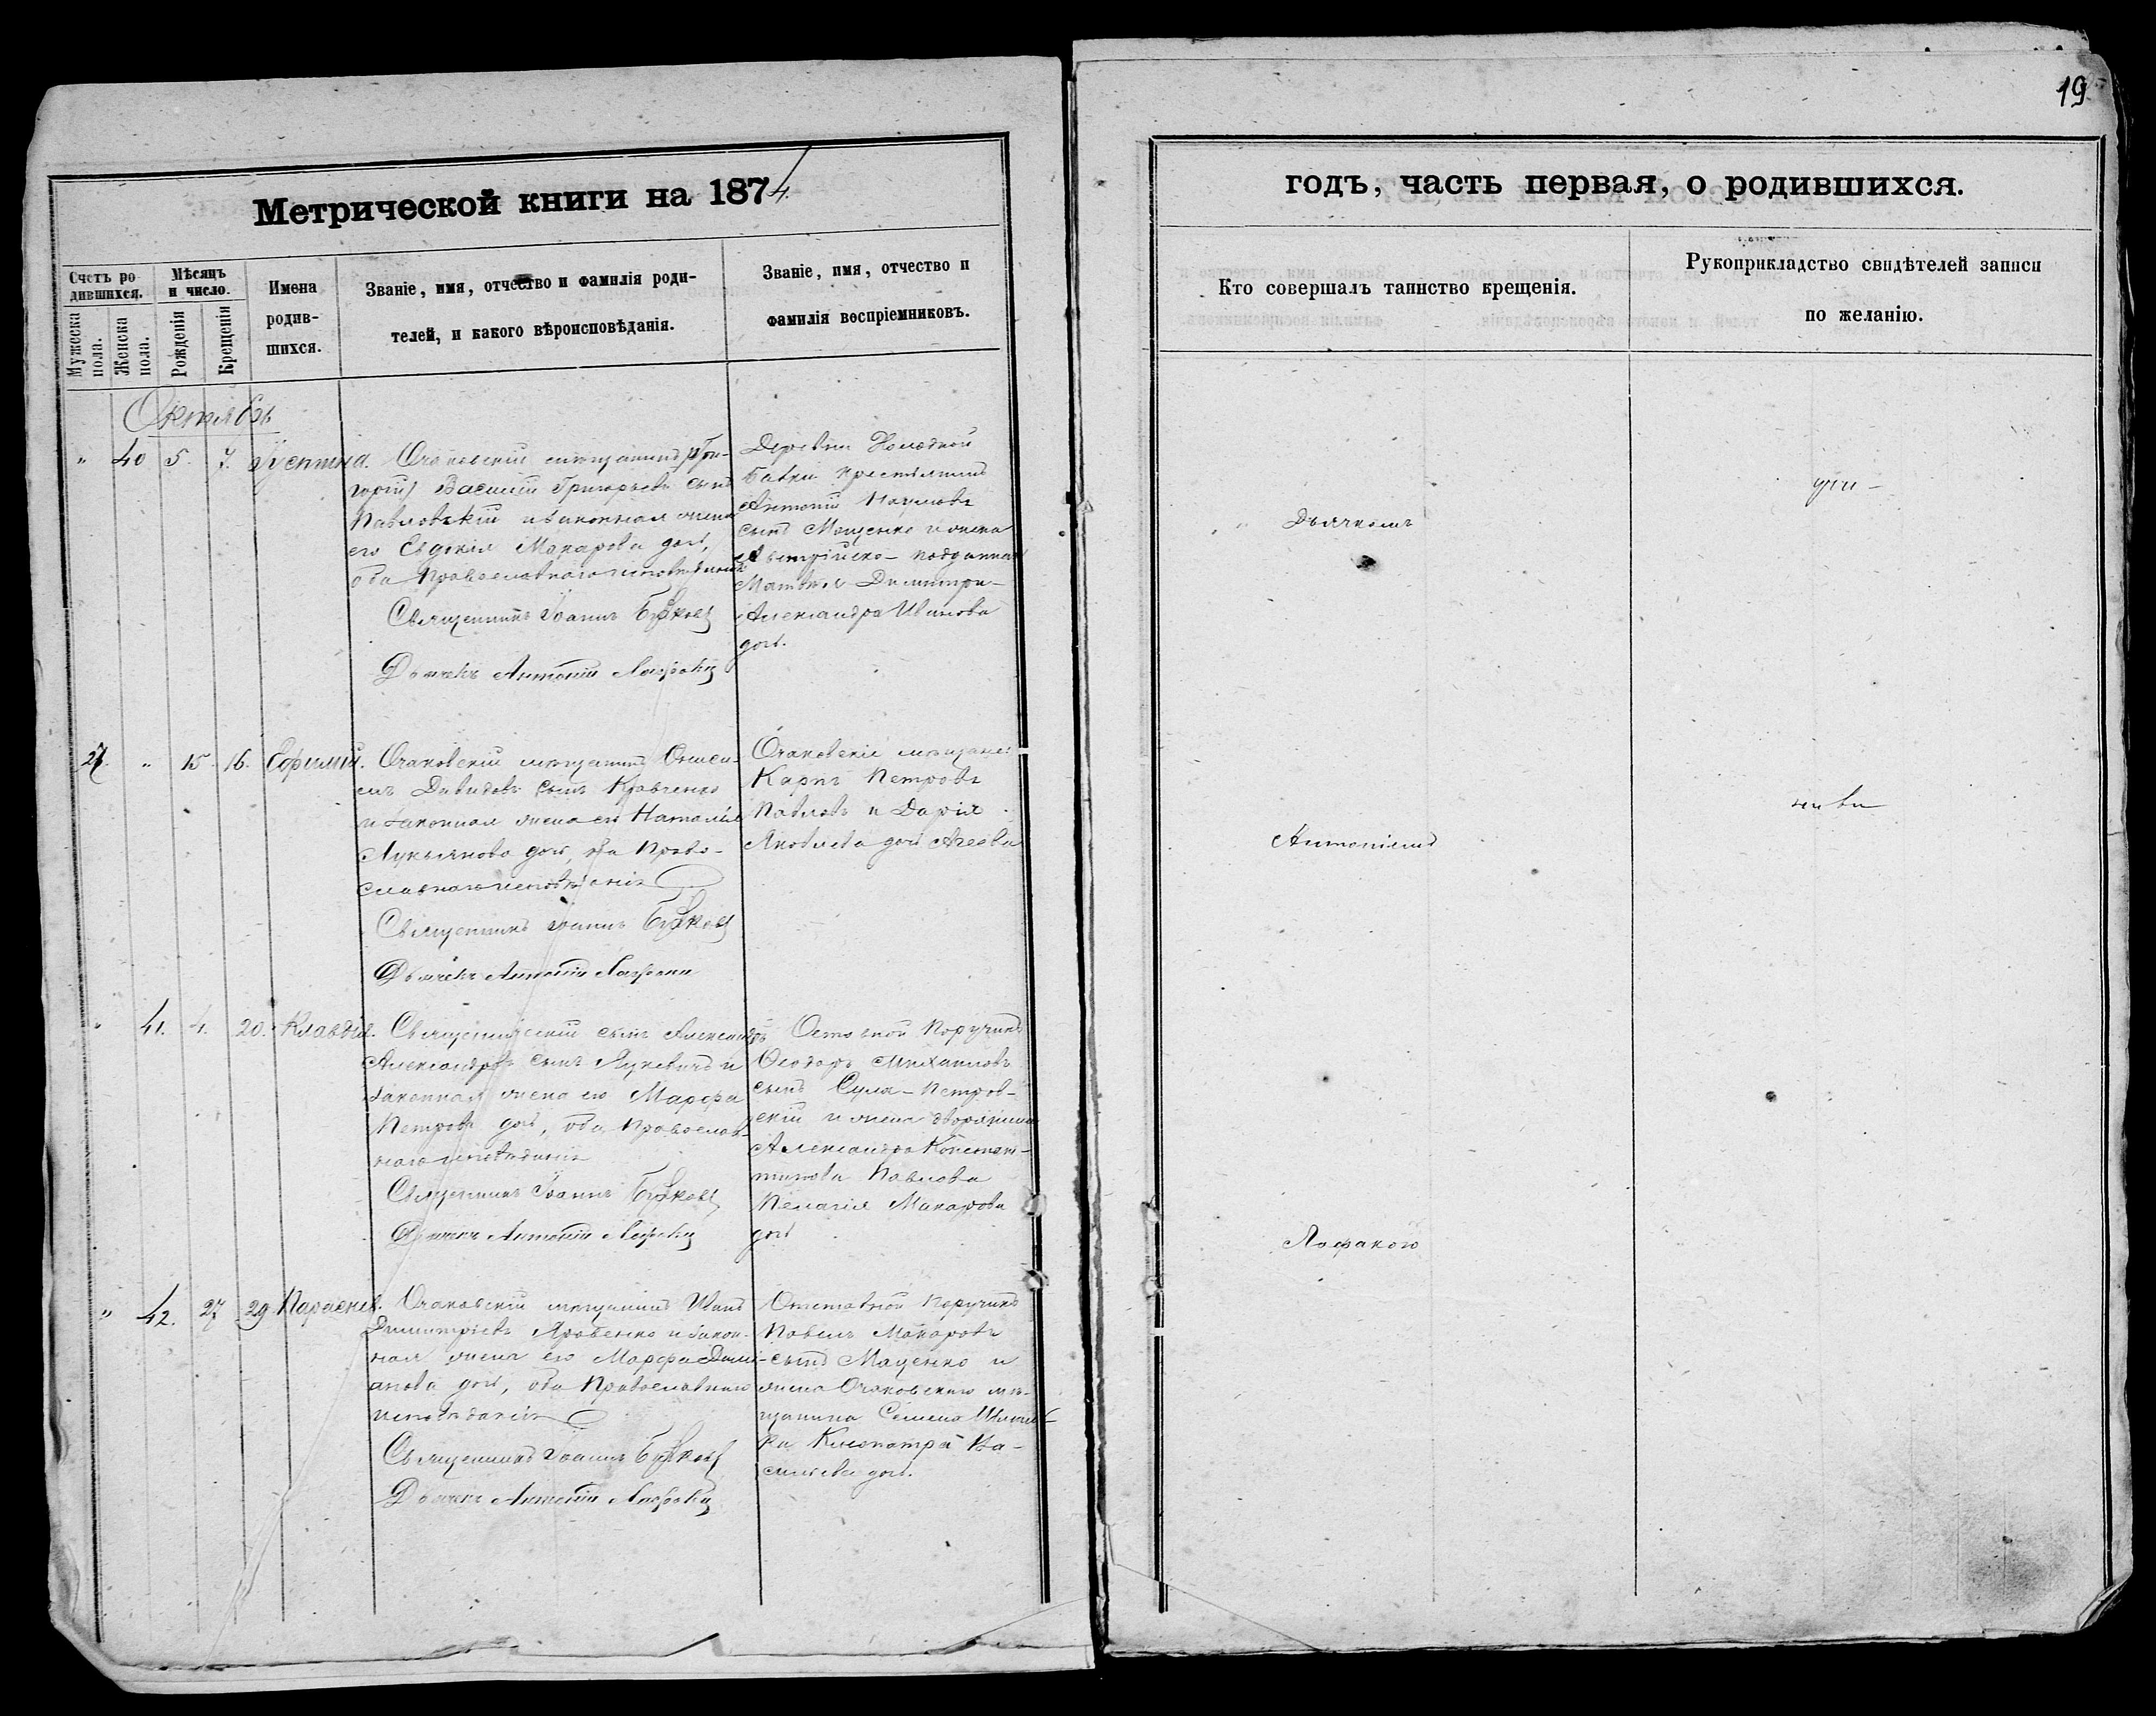 19
Метрической книги на 1874.
годъ, часть первая, о родившихся.
Счетъ родившихся.
Мужеска пола.
Женска пола.
Мѣсяцъ и число.
Рожденія
Крещенія
Имена родившихся.
Званіе, имя, отчество и фамилія роди-
телей, и какого вѣроисповѣданія.
Званіе, имя, отчество и
фамилія воспріемниковъ.
Кто совершалъ таинство крещенія.
Рукоприкладство свидѣтелей записи
по желанію.
Октябрь
" 40 5. 7. Іустина.
Очаковскій мѣщанинъ (Гри-
горій) Василій Григорьевъ сынъ
Павловскій и законная жена
его Евдокія Макарова доч.,
оба Православнаго исповѣданія
Священникъ Іоаннъ
Дьячекъ Антоній
Деревни Холодной
Балки крестьянинъ
Антоній Наумовъ
сынъ Мащенко и жена
Австрійско-подданная
Александра Иванова
доч.
Дьячкомъ
27. " 15. 16. Ефимій.
Очаковскій мѣщанинъ
Давидовъ сынъ Кравченко
и законная жена его Наталія
Лукьянова доч., оба Право-
славнаго исповѣданія
Священникъ Іоаннъ
Дьячекъ Антоній
Очаковскіе мѣщане:
Карпъ Петровъ
Павловъ и Дарія
Яковлева доч
Антоніемъ
" 41. 4. 20. Клавдія.
Священническій сынъ Александръ
Александровъ сынъ Яцкевичъ и
законная жена его Марфа
Петрова доч., оба Православ-
наго исповѣданія
Священникъ Іоаннъ
Дьячекъ Антоній
Поручикъ
Ѳеодоръ Михаиловъ
сынъ Сула-Петров-
скій и жена дворянина
Александра Констан-
тинова Павлова
Пелагія Макарова
доч
" 42. 27 29 Параскев.
Очаковскій мѣщанинъ Иванъ
Димитріевъ Яровенко и закон-
ная жена его Марфа Деми-
анова доч., оба Православнаго
исповѣданія
Священникъ Іоаннъ
Дьячекъ Антоній
Отставной Поручикъ
Павелъ Макаровъ
сынъ Маценко и
жена Очаковскаго мѣ-
щанина Семена
Клеопатра Ва-
сильева доч.